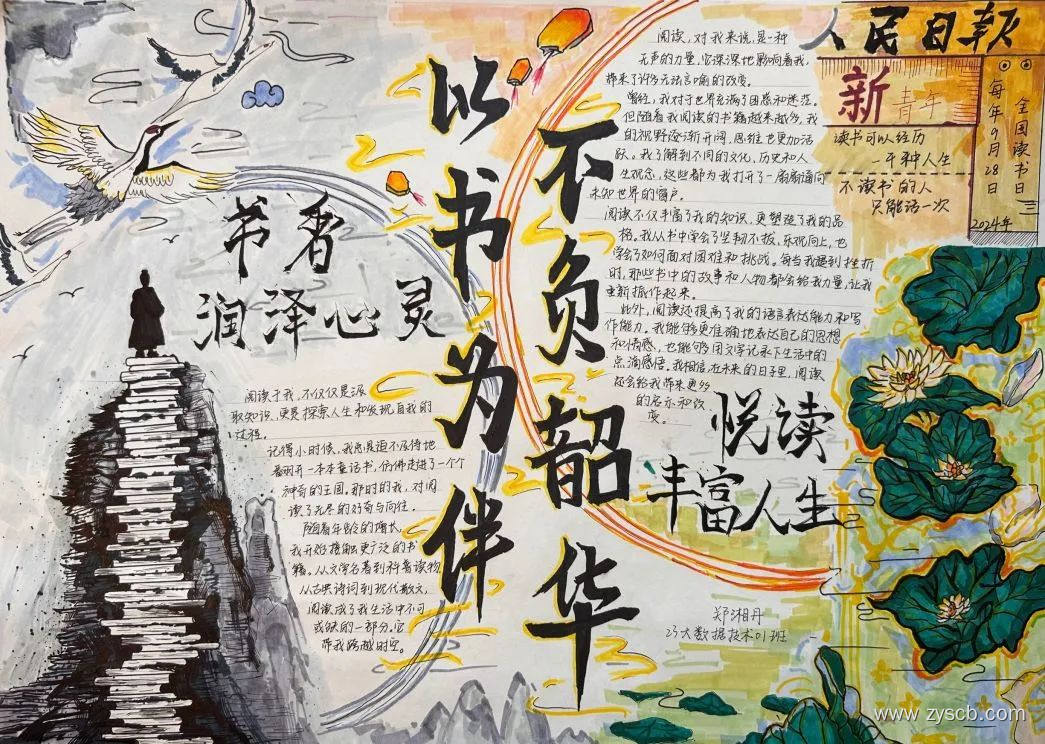 以书为伴
不负韶华
书香
润泽心灵
阅读于我,不仅仅是汲
取知识,更是探索人生和发现自我的
过程。
记得小时候,我总是迫不及待地
翻开一本本童话书,仿佛走进了一个个
神奇的王国。那时的我,对阅
读了无尽的好奇与向往。
随着年龄的增长,
我开始接触更广泛的书
籍。从文学名著到科普读物,
从古典诗词到现代散文,
阅读成了我生活中不可
或缺的一部分。它
带我跨越时空。
阅读,对我来说,是一种
无声的力量,它深深地影响着我,
带来了许多无法言喻的改变。
曾经,我对于世界充满了困惑和迷茫。
但随着我阅读的书籍越来越多,我
的视野逐渐开阔,思维也更加活
跃。我了解到不同的文化、历史和人
生观念,这些都为我打开了一扇扇通向
未知世界的窗户。
阅读不仅丰富了我的知识,更塑造了我的品
格。我从书中学会了坚韧不拔、乐观向上,也
学会了如何面对困难和挑战。每当我遇到挫折
时,那些书中的故事和人物都会给我力量,让我
重新振作起来。
此外,阅读还提高了我的语言表达能力和写
作能力。我能够更准确地表达自己的思想
和情感,也能够用文字记录下生活中的
点滴感悟。我相信,在未来的日子里,阅读
还会给我带来更多
的启示和改
变。
悦读
丰富人生
人民日报
新青年
读书可以经历
一千种人生
不读书的人
只能活一次
全国读书日
每年9月28日
2024年
郑湘丹
23大数据技术01班
www.zyscb.com